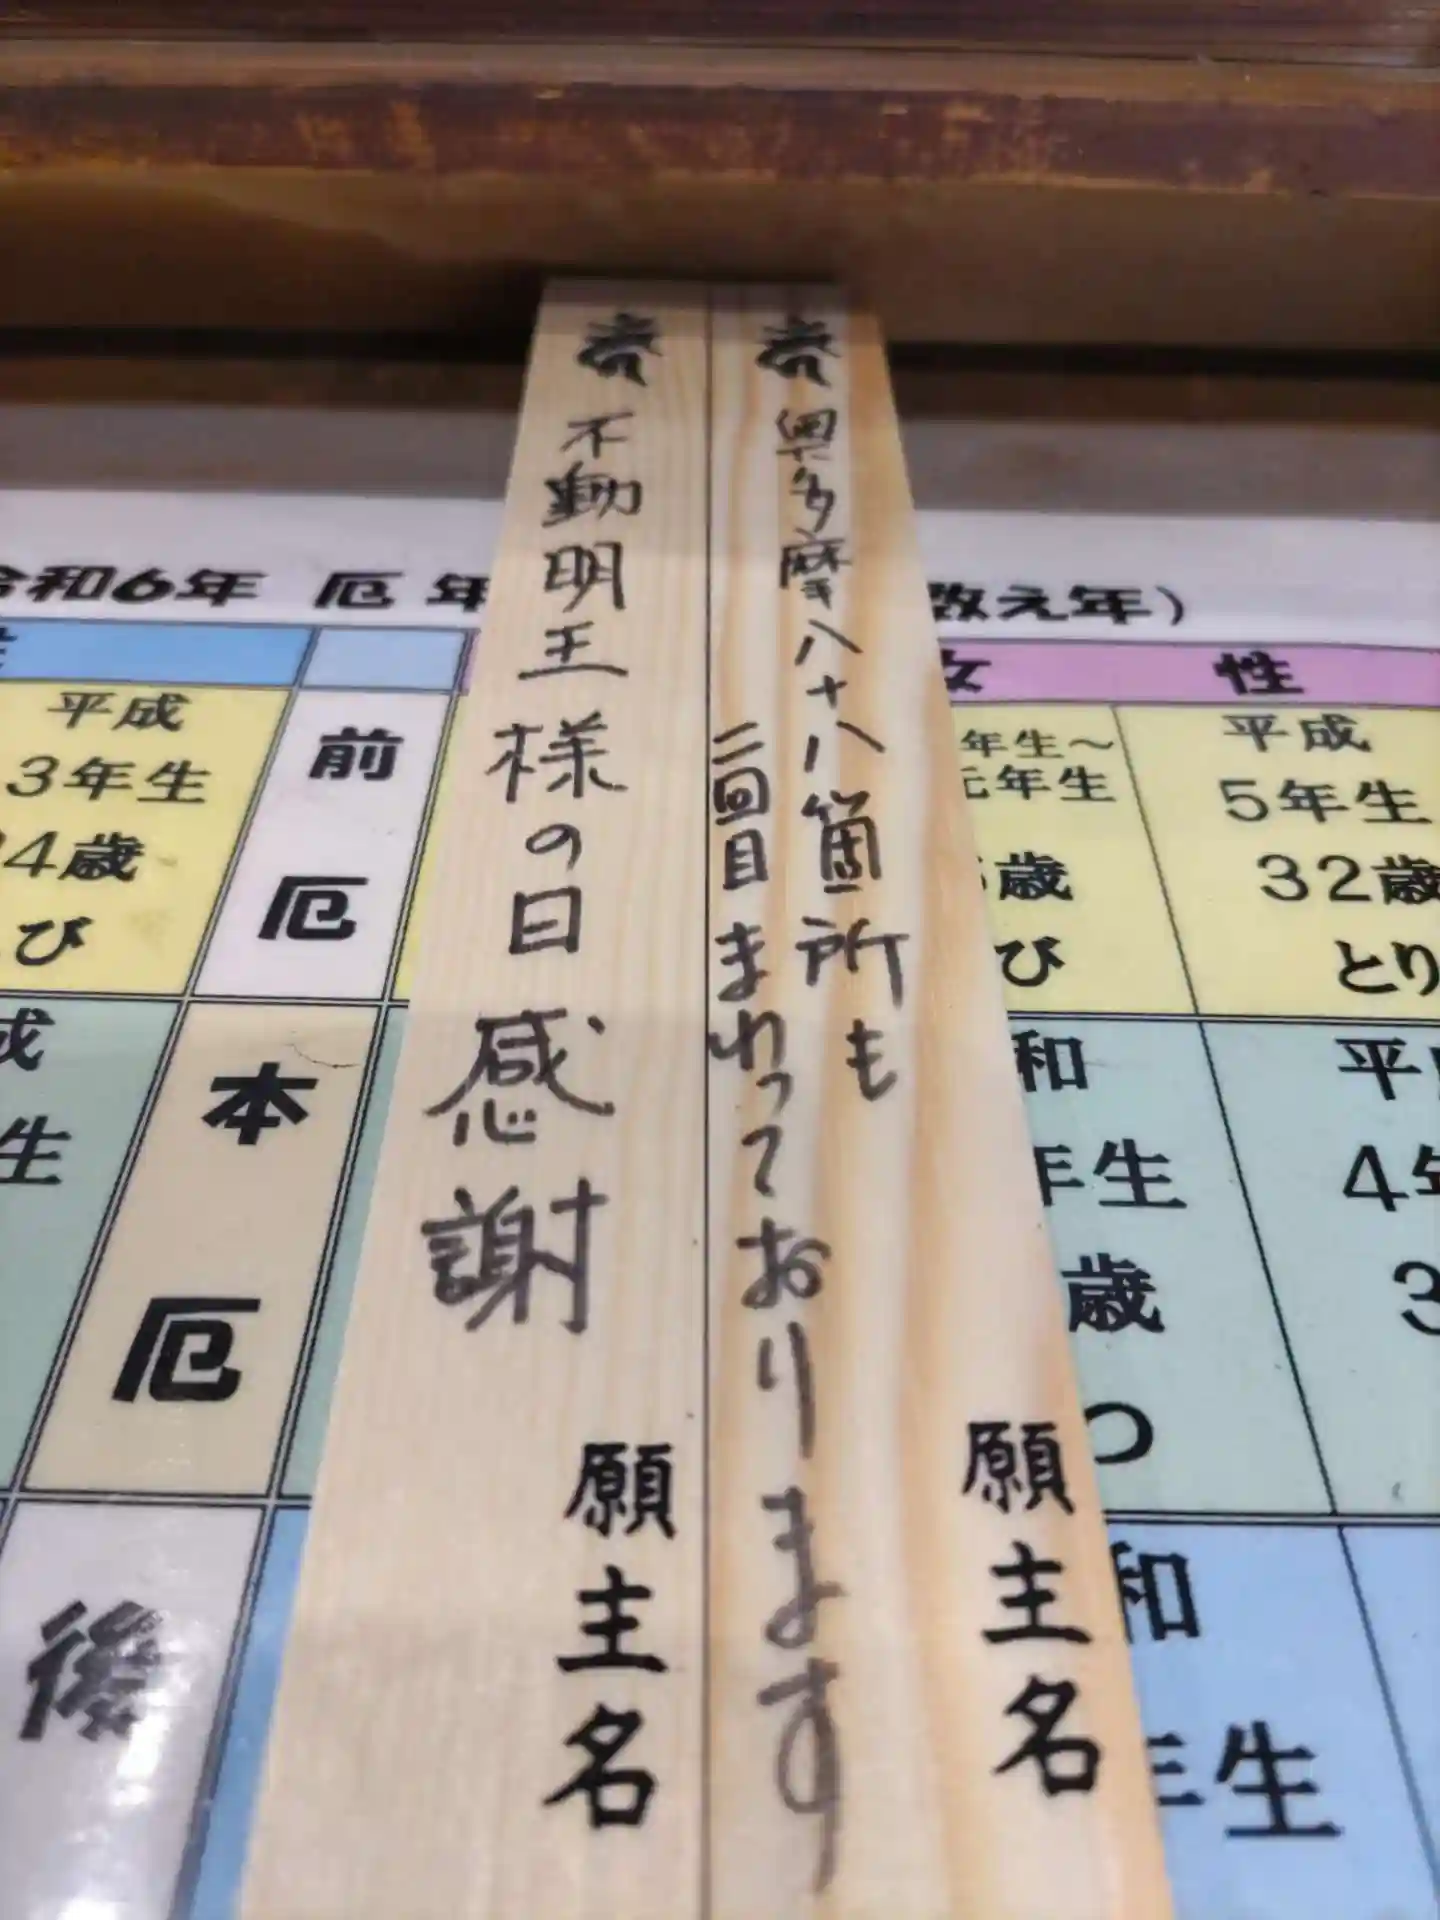 令和6年 厄年
数え年)
女性
平成
3年生
4歳
び
前厄
年生~
元年生
歳
び
平成
5年生
32歳
とり
成
生
本厄
和
年生
歳
つ
平
4年
3
後
和
年生
奥多摩八十八箇所も
二回目まわっております
願主名
不動明王様の日感謝
願主名